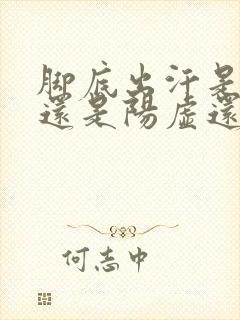 脚底出汗是
還是陽虛還
何志中